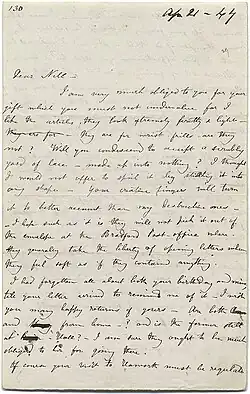 130
Apr 21 – 47
Dear Nell –
I am very much obliged to you for your
gift which you must not undervalue for I
like the articles – they look extremely pretty & light –
They are for wrist frills – are they
not? Will you condescend to accept a
yard of lace – made up into nothing? I thought
I would not offer to spoil it by stitching it into
any shape – Your creative fingers will turn
it to better account than my destructive ones –
I hope such as it is they will not pick it out of
the envelope at the Bradford Post-office where
they generally take the liberty of opening letters when
they feel soft as if they contained anything.
I had forgotten all about both your birthday and mine
till your letter arrived to remind me of it – I wish
you many happy returns of yours – Are both
and from home? and is the former
at ? – I am sure they ought to be much
obliged to for going there.
Of course your visit to must be regulated